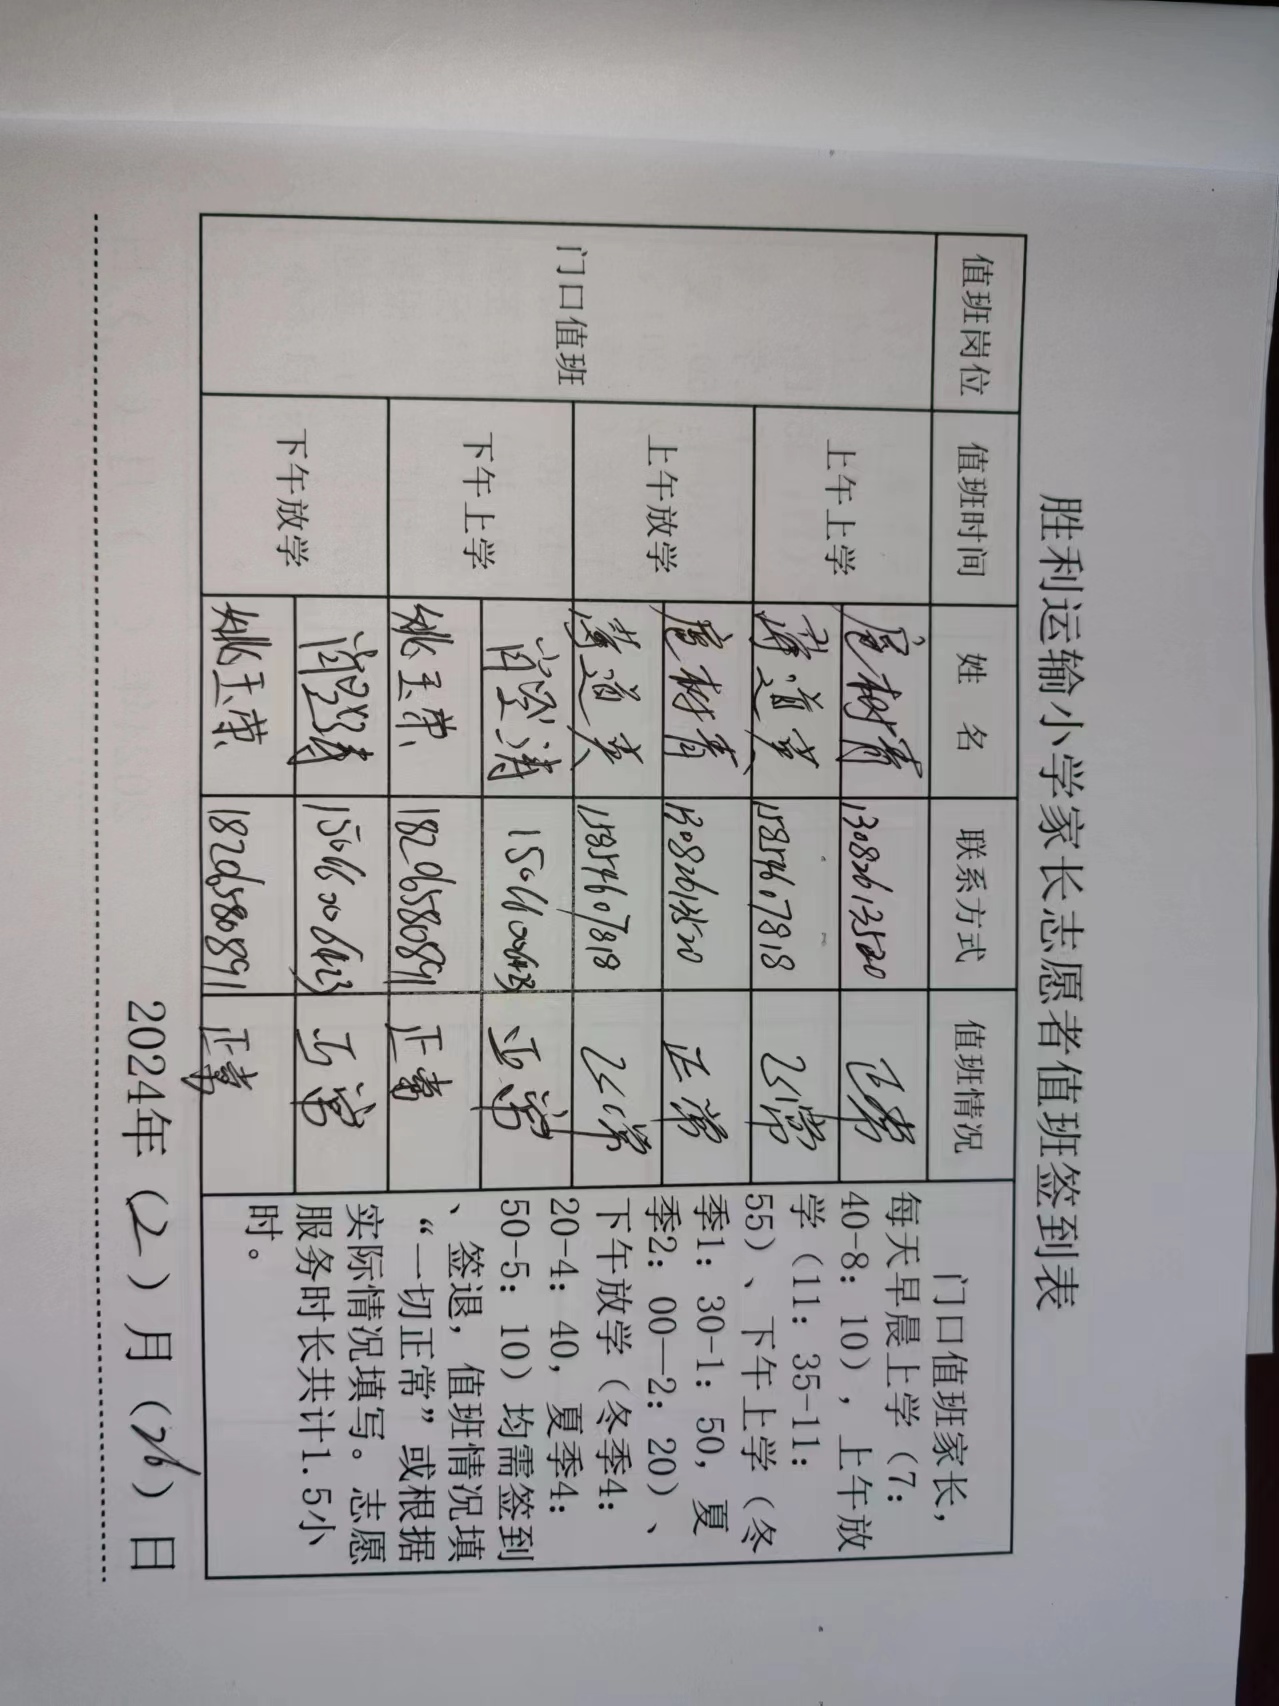 胜利运输小学家长志愿者值班签到表
值班岗位 值班时间 姓 名 联系方式 值班情况
门口值班
上午上学
13082613520 正常
薄道英 15854607818 正常
上午放学
13082613520 正常
薄道英 15854607818 正常
下午上学
正常
姚玉荣 18206580891 正常
下午放学
正常
姚玉荣 18206580891 正常
门口值班家长，
每天早晨上学（7：
40-8：10），上午放
学（11：35-11：
55）、下午上学（冬
季1：30-1：50，夏
季2：00—2：20）、
下午放学（冬季4：
20-4：40，夏季4：
50-5：10）均需签到
、签退，值班情况填
“一切正常”或根据
实际情况填写。志愿
服务时长共计1.5小
时。
2024年（2）月（26）日